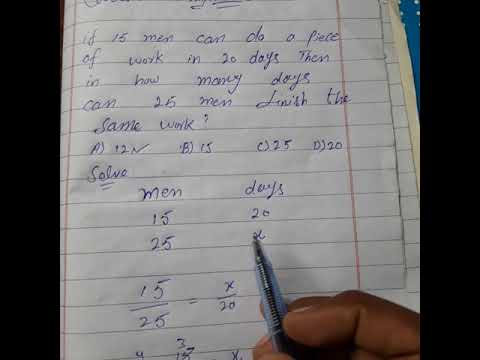 if 15 men can do a piece
of work in 20 days Then
in how many days
can 25 men finish the
same work?
A) 12✓ B) 15 C) 25 D) 20
Solve
men days
15 20
25 x
15/25 = x/20
3
15 x